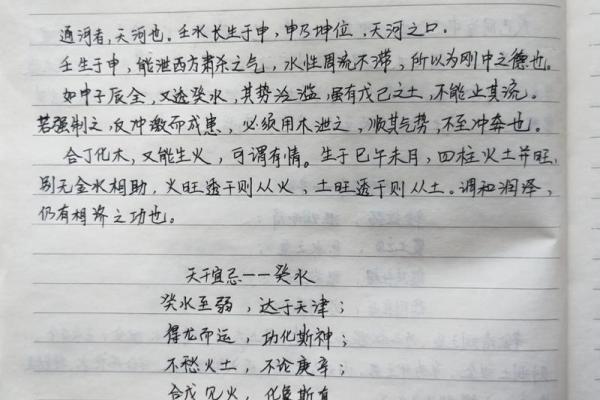 通河者,天河也。壬水长生于申,申乃坤位,天河之口.
壬生于申,能泄西方肃杀之气,水性周流不滞,所以为刚中之德也。
如申子辰全,又透癸水,其势泛滥,虽有戊己之土,不能止其流。
若强制之,反冲激而成患,必须用木泄之,顺其气势,不至冲奔也。
合丁化木,又能生火,可谓有情。生于巳午未月,四柱火土并旺,
别无金水相助,火旺透干则从火,土旺透干则从土。调和润泽,
仍有相济之功也。
天干宜忌——癸水
癸水至弱,达于天津;
得龙而运,功化斯神;
不愁火土,不论庚辛;
合戊见火,化象斯